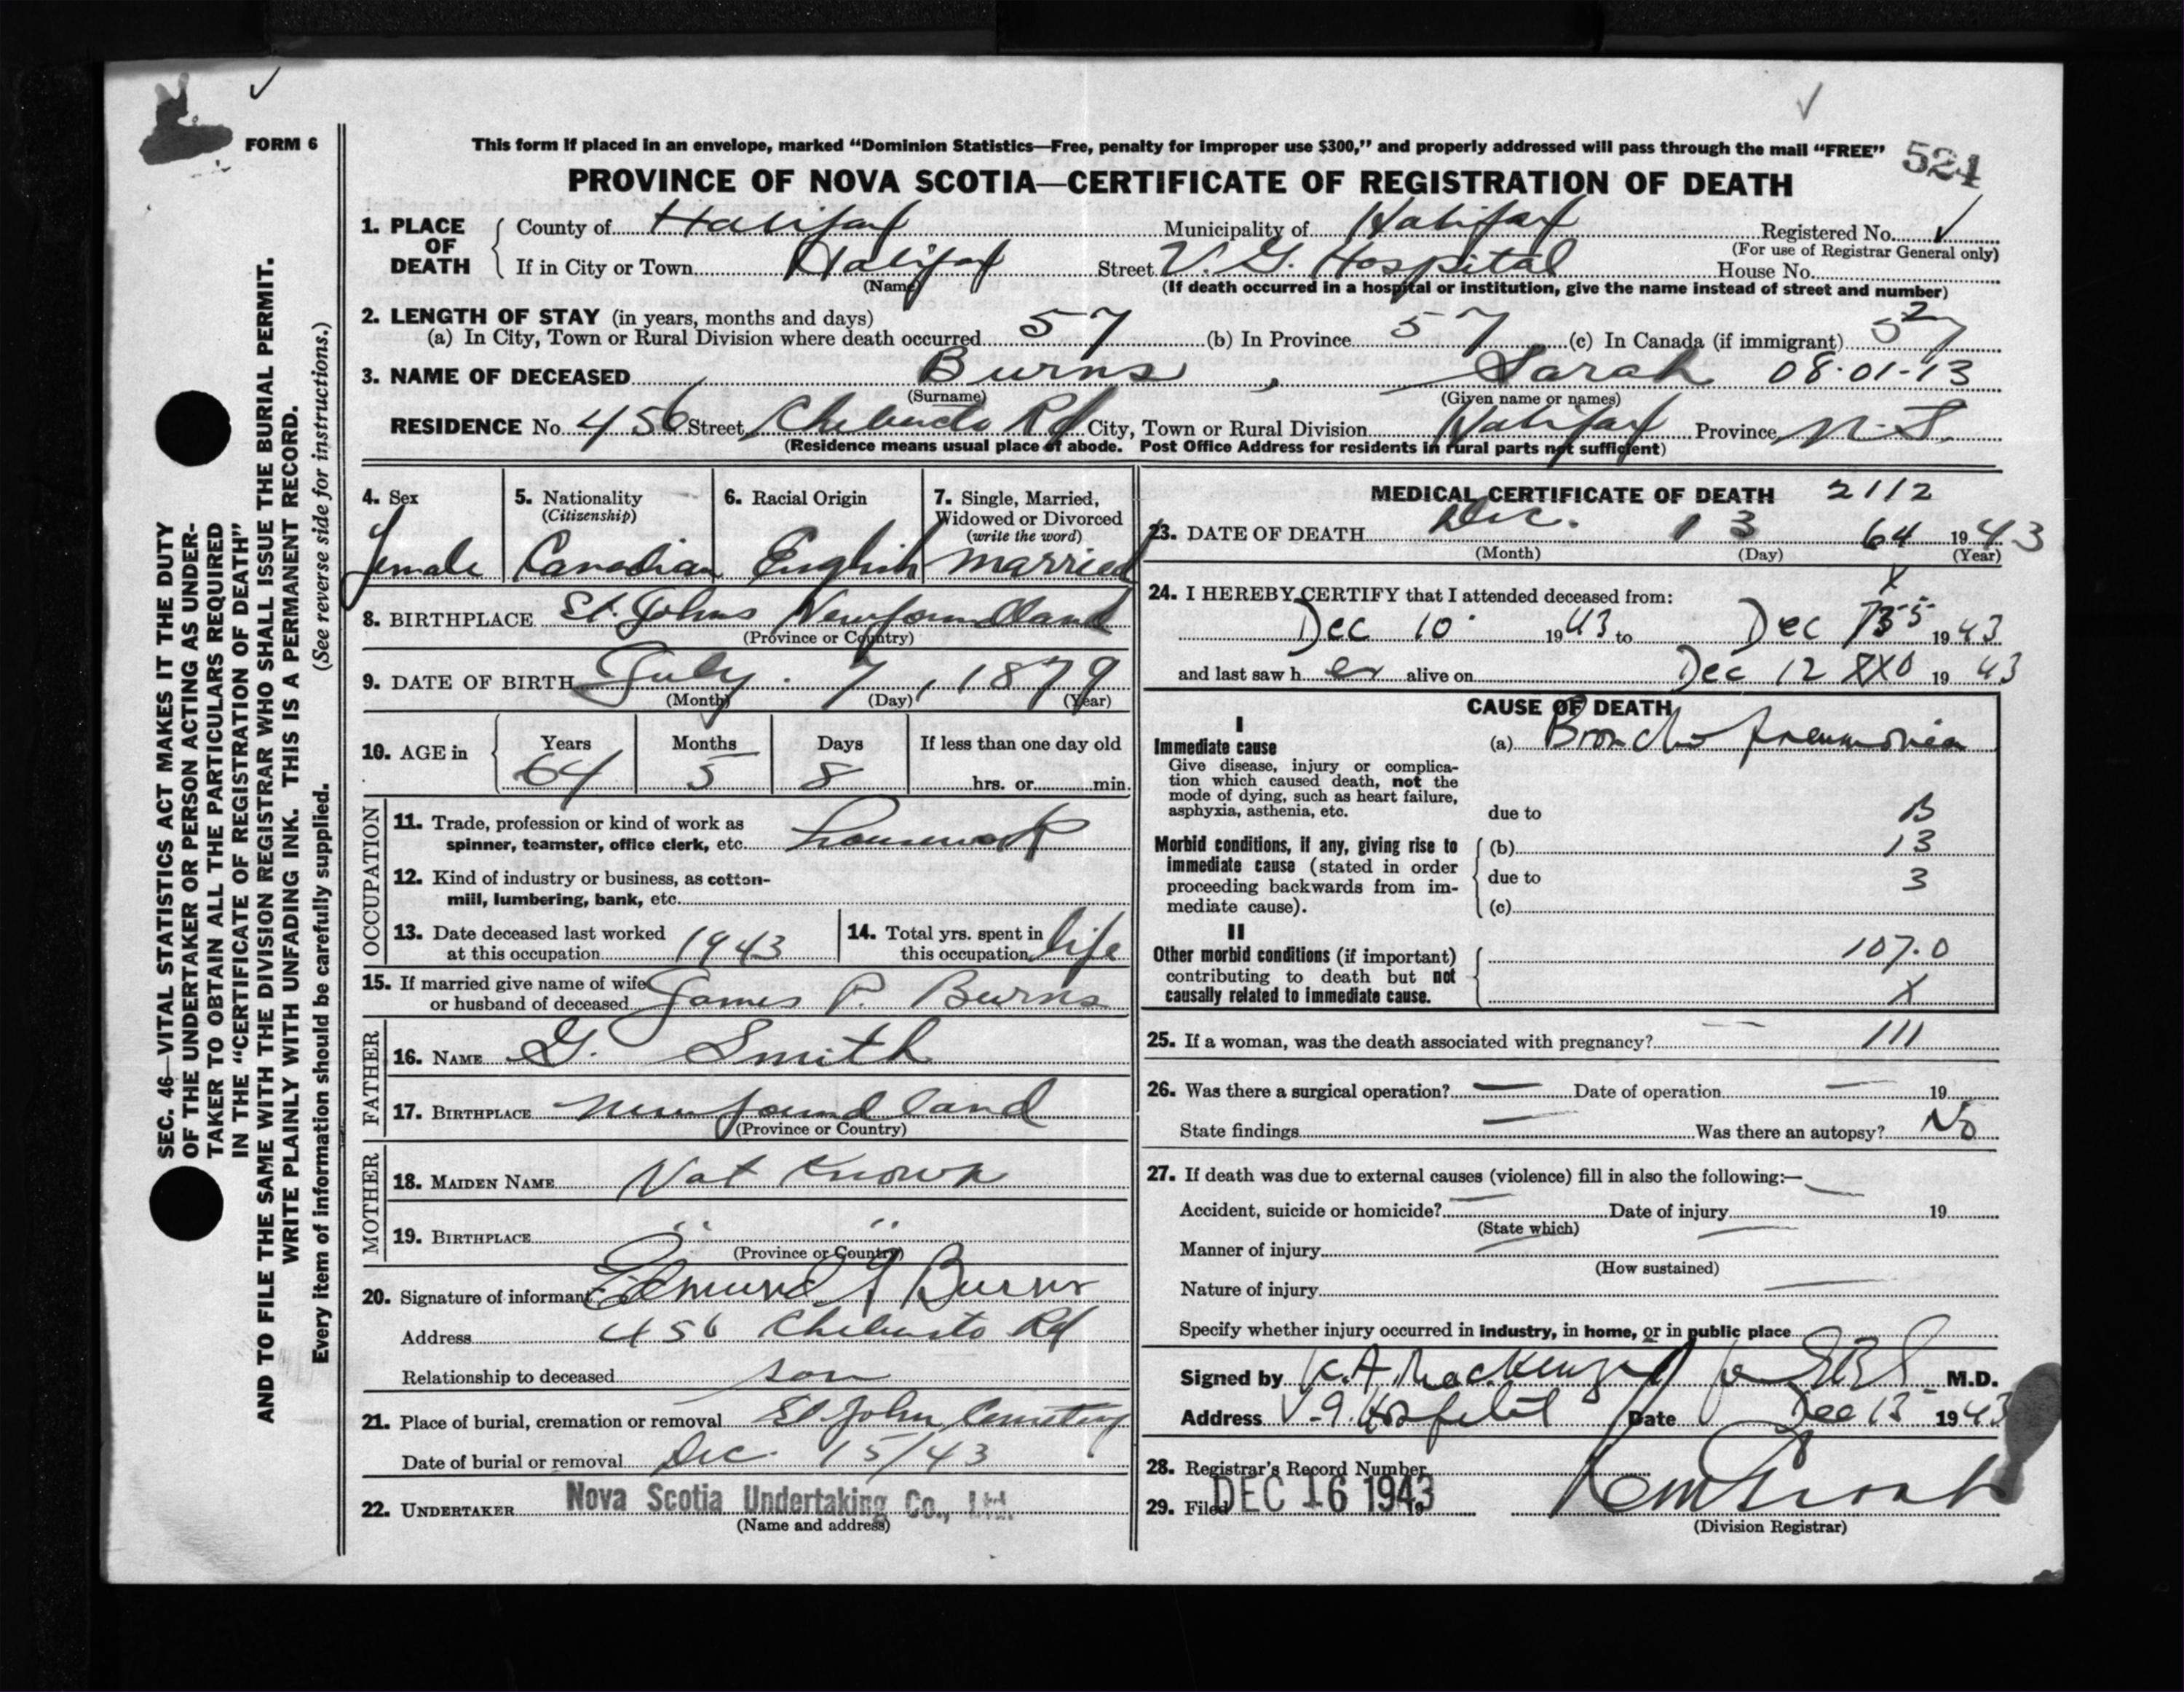 FORM 6
This form if placed in an envelope, marked “Dominion Statistics—Free, penalty for improper use $300,” and properly addressed will pass through the mail “FREE”
524
PROVINCE OF NOVA SCOTIA—CERTIFICATE OF REGISTRATION OF DEATH
1. PLACE OF DEATH
County of Halifax Municipality of Halifax Registered No. ✓
(For use of Registrar General only)
If in City or Town Halifax Street V. G. Hospital House No.
(Name) (If death occurred in a hospital or institution, give the name instead of street and number)
2. LENGTH OF STAY (in years, months and days)
(a) In City, Town or Rural Division where death occurred 57 (b) In Province 57 (c) In Canada (if immigrant) 57 2
3. NAME OF DECEASED Burns, Sarah 08·01-13
(Surname) (Given name or names)
RESIDENCE No. 456 Street Chebucto Rd City, Town or Rural Division Halifax Province N. S.
(Residence means usual place of abode. Post Office Address for residents in rural parts not sufficient)
4. Sex
Female
5. Nationality
(Citizenship)
Canadian
6. Racial Origin
English
7. Single, Married,
Widowed or Divorced
(write the word)
married
8. BIRTHPLACE St. Johns Newfoundland
(Province or Country)
9. DATE OF BIRTH July 7, 1879
(Month) (Day) (Year)
10. AGE in
Years Months Days If less than one day old
64 5 8 hrs. or min.
OCCUPATION
11. Trade, profession or kind of work as
spinner, teamster, office clerk, etc. housework
12. Kind of industry or business, as cotton-
mill, lumbering, bank, etc.
13. Date deceased last worked
at this occupation 1943
14. Total yrs. spent in
this occupation life
15. If married give name of wife
or husband of deceased James P. Burns
FATHER
16. NAME G. Smith
17. BIRTHPLACE newfoundland
(Province or Country)
MOTHER
18. MAIDEN NAME Not Known
19. BIRTHPLACE " "
(Province or Country)
20. Signature of informant Edmund J Burns
Address 456 Chebucto Rd
Relationship to deceased son
21. Place of burial, cremation or removal St. John Cemetery
Date of burial or removal Dec. 15/43
22. UNDERTAKER Nova Scotia Undertaking Co., Ltd.
(Name and address)
MEDICAL CERTIFICATE OF DEATH 2112
23. DATE OF DEATH Dec. 13 64 1943
(Month) (Day) (Year)
24. I HEREBY CERTIFY that I attended deceased from: X
Dec 10 1943 to Dec 1943
and last saw her alive on Dec 12 XX0 1943
CAUSE OF DEATH
I
Immediate cause
Give disease, injury or complica-
tion which caused death, not the
mode of dying, such as heart failure,
asphyxia, asthenia, etc.
(a) Broncho pneumonia
due to B
Morbid conditions, if any, giving rise to
immediate cause (stated in order
proceeding backwards from im-
mediate cause).
(b) 13
due to 3
(c)
II
Other morbid conditions (if important)
contributing to death but not
causally related to immediate cause.
107.0
X
25. If a woman, was the death associated with pregnancy? — 111
26. Was there a surgical operation? — Date of operation — 19
State findings — Was there an autopsy? No
27. If death was due to external causes (violence) fill in also the following:—
Accident, suicide or homicide? — Date of injury — 19
(State which)
Manner of injury —
(How sustained)
Nature of injury —
Specify whether injury occurred in industry, in home, or in public place
Signed by K. A. MacKenzie M.D.
Address V-G. Hospital Date Dec 13 1943
28. Registrar's Record Number
29. Filed DEC 16 1943 19
(Division Registrar)
SEC. 46—VITAL STATISTICS ACT MAKES IT THE DUTY
OF THE UNDERTAKER OR PERSON ACTING AS UNDER-
TAKER TO OBTAIN ALL THE PARTICULARS REQUIRED
IN THE “CERTIFICATE OF REGISTRATION OF DEATH”
AND TO FILE THE SAME WITH THE DIVISION REGISTRAR WHO SHALL ISSUE THE BURIAL PERMIT.
WRITE PLAINLY WITH UNFADING INK. THIS IS A PERMANENT RECORD.
Every item of information should be carefully supplied. (See reverse side for instructions.)